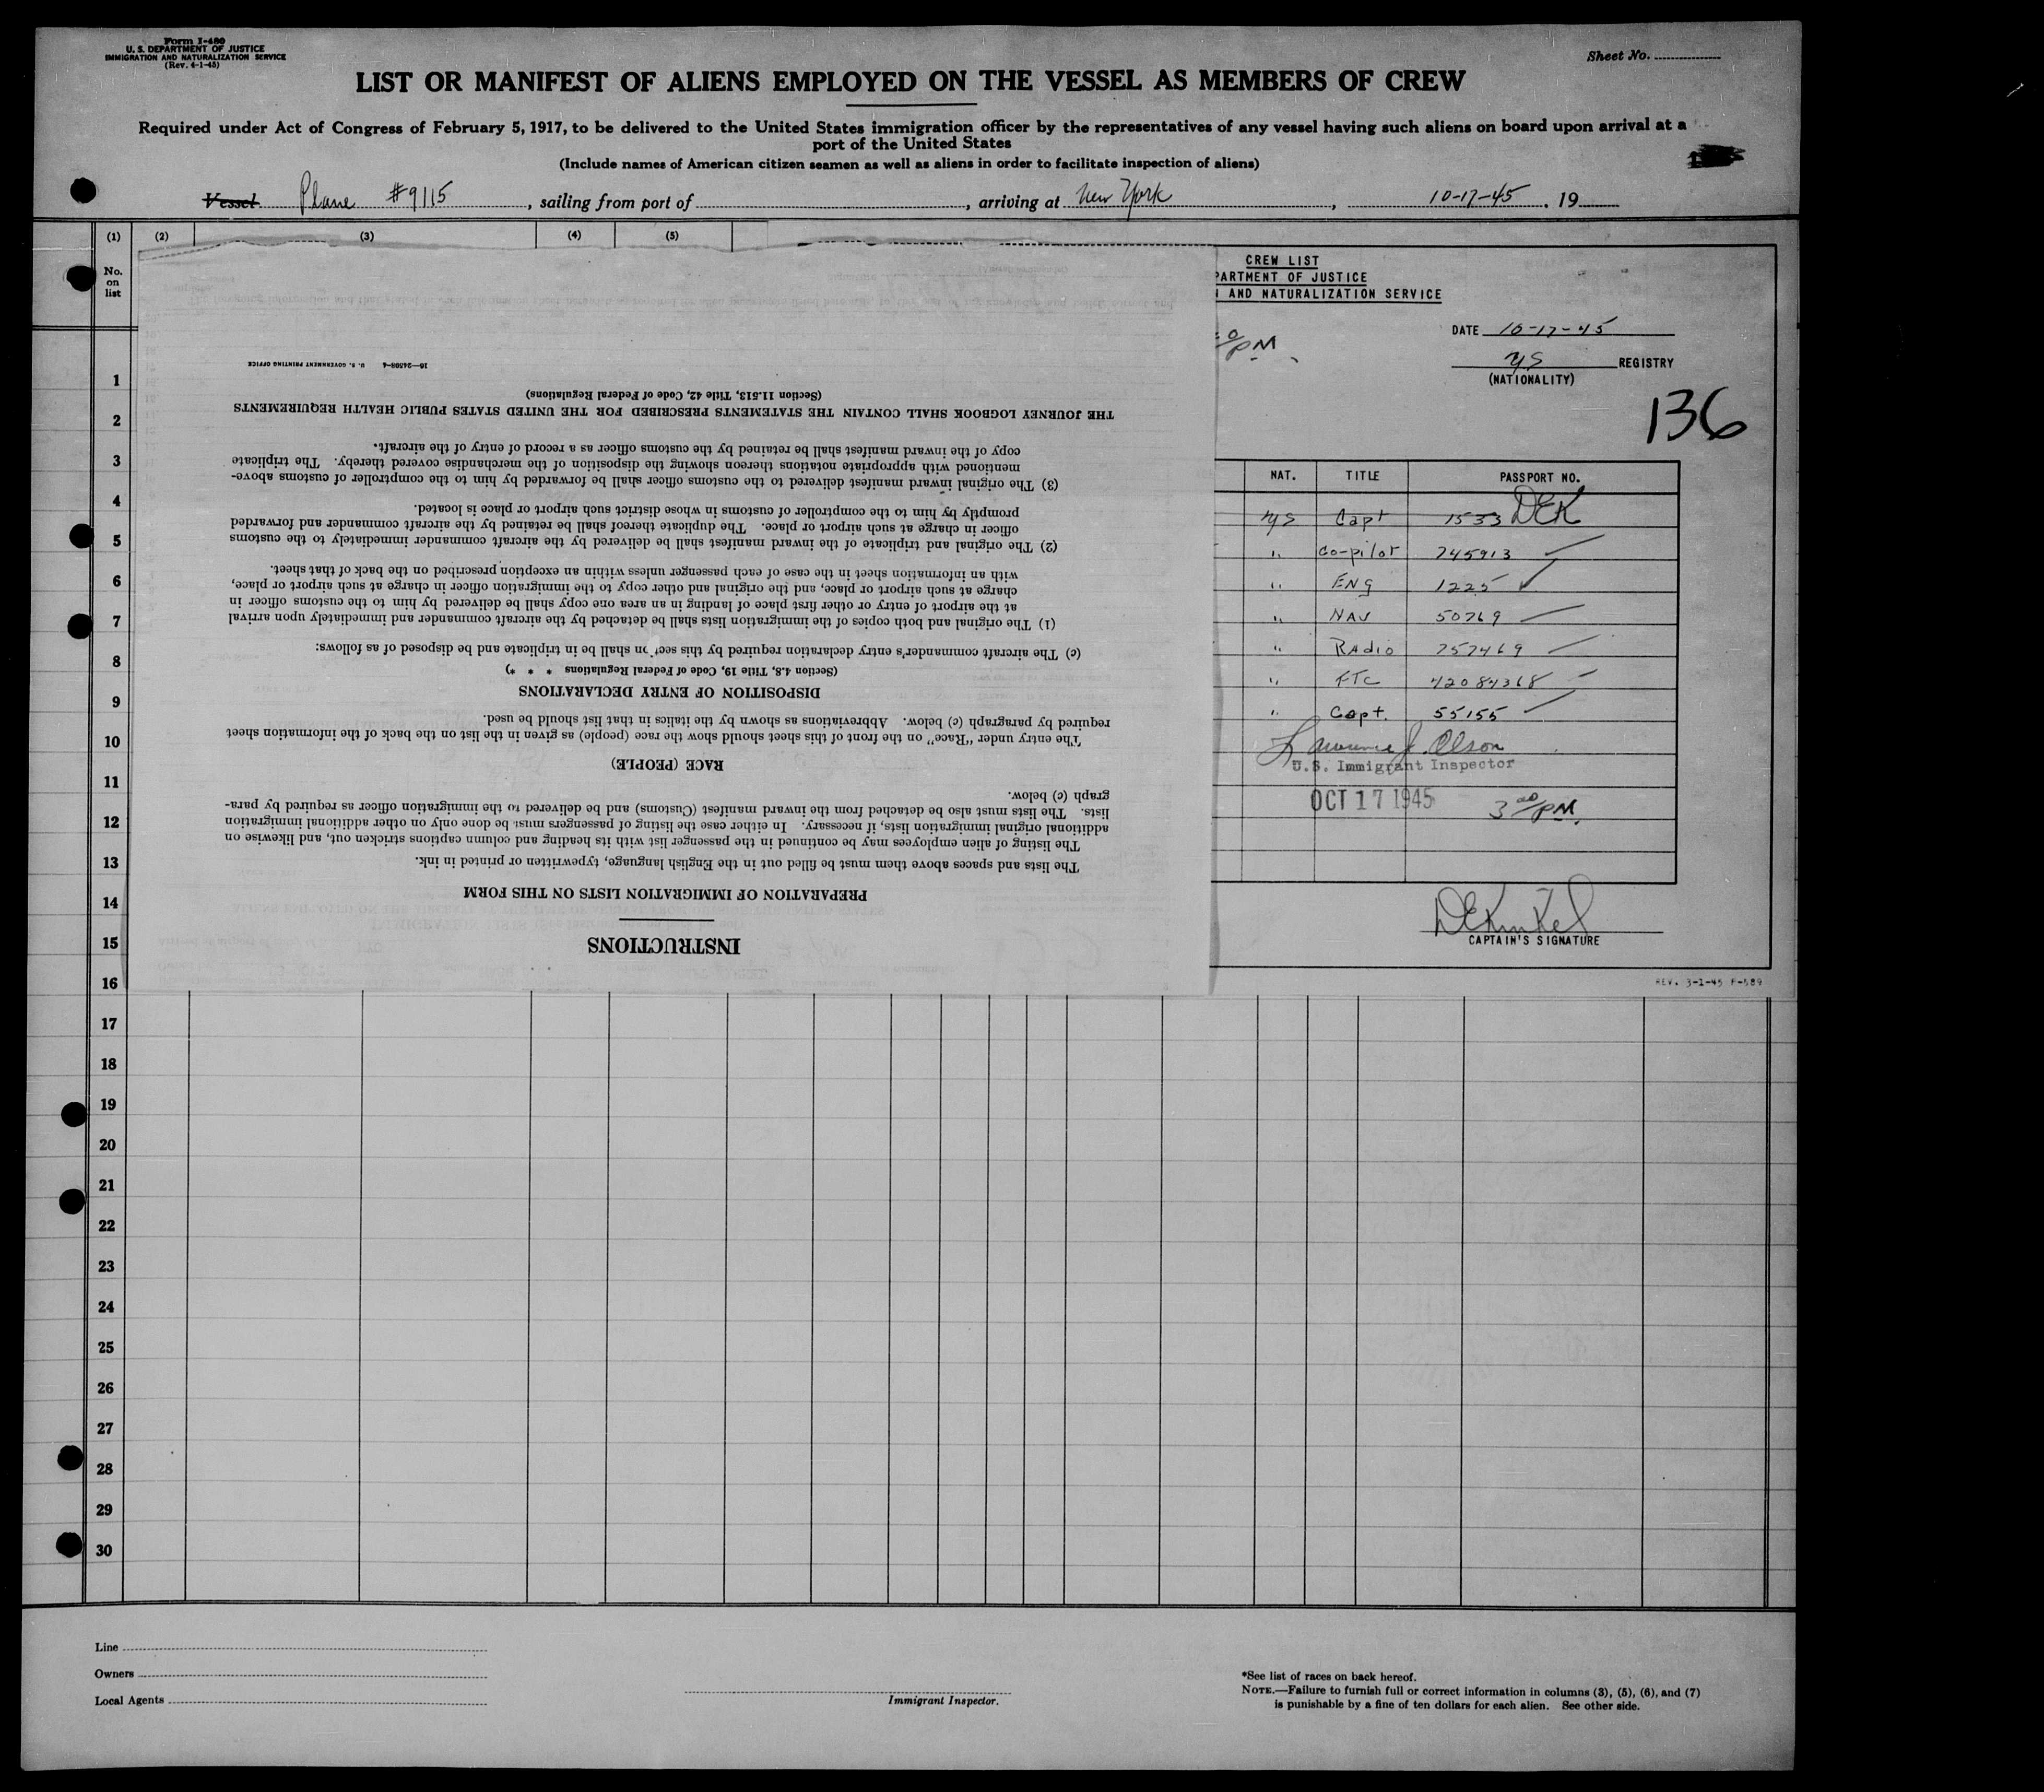 Form I-480
U. S. DEPARTMENT OF JUSTICE
IMMIGRATION AND NATURALIZATION SERVICE
(Rev. 4-1-45)
Sheet No.
LIST OR MANIFEST OF ALIENS EMPLOYED ON THE VESSEL AS MEMBERS OF CREW
Required under Act of Congress of February 5, 1917, to be delivered to the United States immigration officer by the representatives of any vessel having such aliens on board upon arrival at a
port of the United States
(Include names of American citizen seamen as well as aliens in order to facilitate inspection of aliens)
Vessel Plane #9115, sailing from port of , arriving at New York , 10-17-45 , 19
(1) (2) (3) (4) (5)
No.
on
list
1
2
3
4
5
6
7
8
9
10
11
12
13
14
15
16
17
18
19
20
21
22
23
24
25
26
27
28
29
30
INSTRUCTIONS
PREPARATION OF IMMIGRATION LISTS ON THIS FORM
The lists and spaces above them must be filled out in the English language, typewritten or printed in ink.
The listing of alien employees may be continued in the passenger list with its heading and column captions stricken out, and likewise on
additional original immigration lists, if necessary. In either case the listing of passengers must be done only on other additional immigration
lists. The lists must also be detached from the inward manifest (Customs) and be delivered to the immigration officer as required by para-
graph (c) below.
RACE (PEOPLE)
The entry under "Race" on the front of this sheet should show the race (people) as given in the list on the back of the information sheet
required by paragraph (c) below. Abbreviations as shown by the italics in that list should be used.
DISPOSITION OF ENTRY DECLARATIONS
(Section 4.8, Title 19, Code of Federal Regulations * * *)
(c) The aircraft commander's entry declaration required by this section shall be in triplicate and be disposed of as follows:
(1) The original and both copies of the immigration lists shall be detached by the aircraft commander and immediately upon arrival
at the airport of entry or other first place of landing in an area one copy shall be delivered by him to the customs officer in
charge at such airport or place, and the original and other copy to the immigration officer in charge at such airport or place,
with an information sheet in the case of each passenger unless within an exception prescribed on the back of that sheet.
(2) The original and triplicate of the inward manifest shall be delivered by the aircraft commander immediately to the customs
officer in charge at such airport or place. The duplicate thereof shall be retained by the aircraft commander and forwarded
promptly by him to the comptroller of customs in whose district such airport or place is located.
(3) The original inward manifest delivered to the customs officer shall be forwarded by him to the comptroller of customs above-
mentioned with appropriate notations thereon showing the disposition of the merchandise covered thereby. The triplicate
copy of the inward manifest shall be retained by the customs officer as a record of entry of the aircraft.
THE JOURNEY LOGBOOK SHALL CONTAIN THE STATEMENTS PRESCRIBED FOR THE UNITED STATES PUBLIC HEALTH REQUIREMENTS
(Section 11.513, Title 42, Code of Federal Regulations)
16—24508-4 U. S. GOVERNMENT PRINTING OFFICE
CREW LIST
PARTMENT OF JUSTICE
N AND NATURALIZATION SERVICE
PM
DATE 10-17-45
US REGISTRY
(NATIONALITY)
136
NAT. TITLE PASSPORT NO.
US Capt 1533 DEK
" Co-pilot 745913
" ENG 1225
" NAV 50769
" Radio 757469
" 42084368
" Capt. 55155
Lawrence J. Olson
U.S. Immigrant Inspector
OCT 17 1945 3 00 PM.
DEKunkel
CAPTAIN'S SIGNATURE
REV. 3-1-45 F-589
Line
Owners
Local Agents
Immigrant Inspector.
*See list of races on back hereof.
NOTE.—Failure to furnish full or correct information in columns (3), (5), (6), and (7)
is punishable by a fine of ten dollars for each alien. See other side.